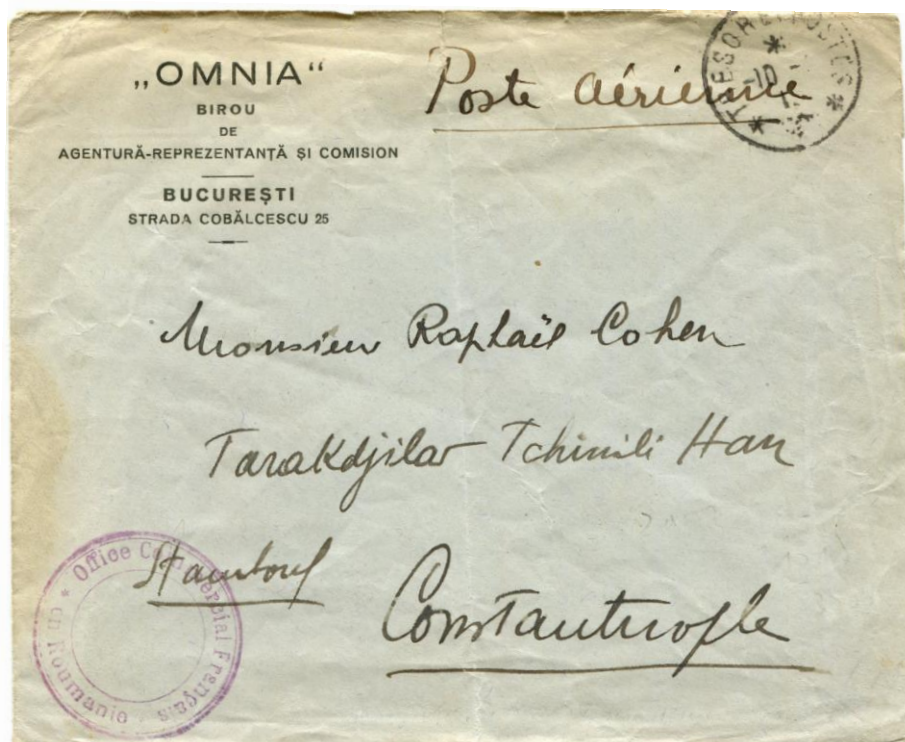 „OMNIA“
BIROU
DE
AGENTURĂ-REPREZENTANȚĂ ȘI COMISION
BUCUREȘTI
STRADA COBĂLCESCU 25
Poste Aérienne
TRESOR ET POSTES
Monsieur Raphaël Cohen
Tarakdjilar Tchinili Han
Stamboul
Constantinople
Office Commercial Français
en Roumanie